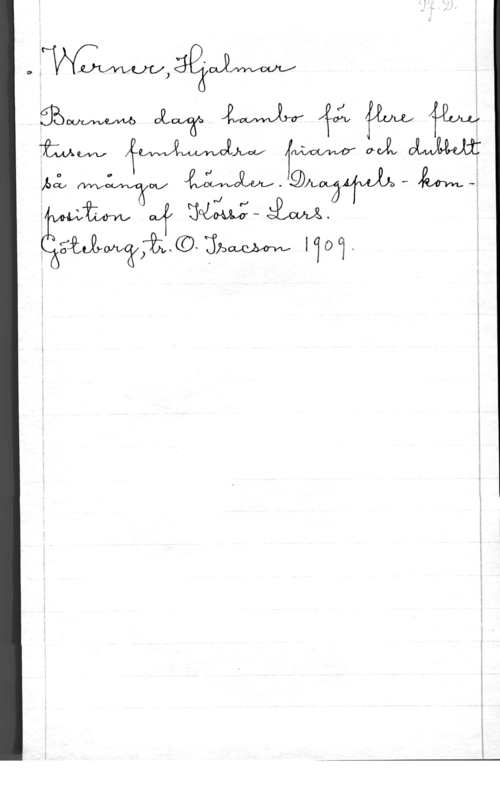 Pf. D.
Werner, Hjalmar
Barnens dags hambo för flere flere
tusen femhundra piano och dubbelt
så många händer. Dragspels-kom-
position af Kössö-Lars.
Göteborg, tr. O. Isacson 1909.